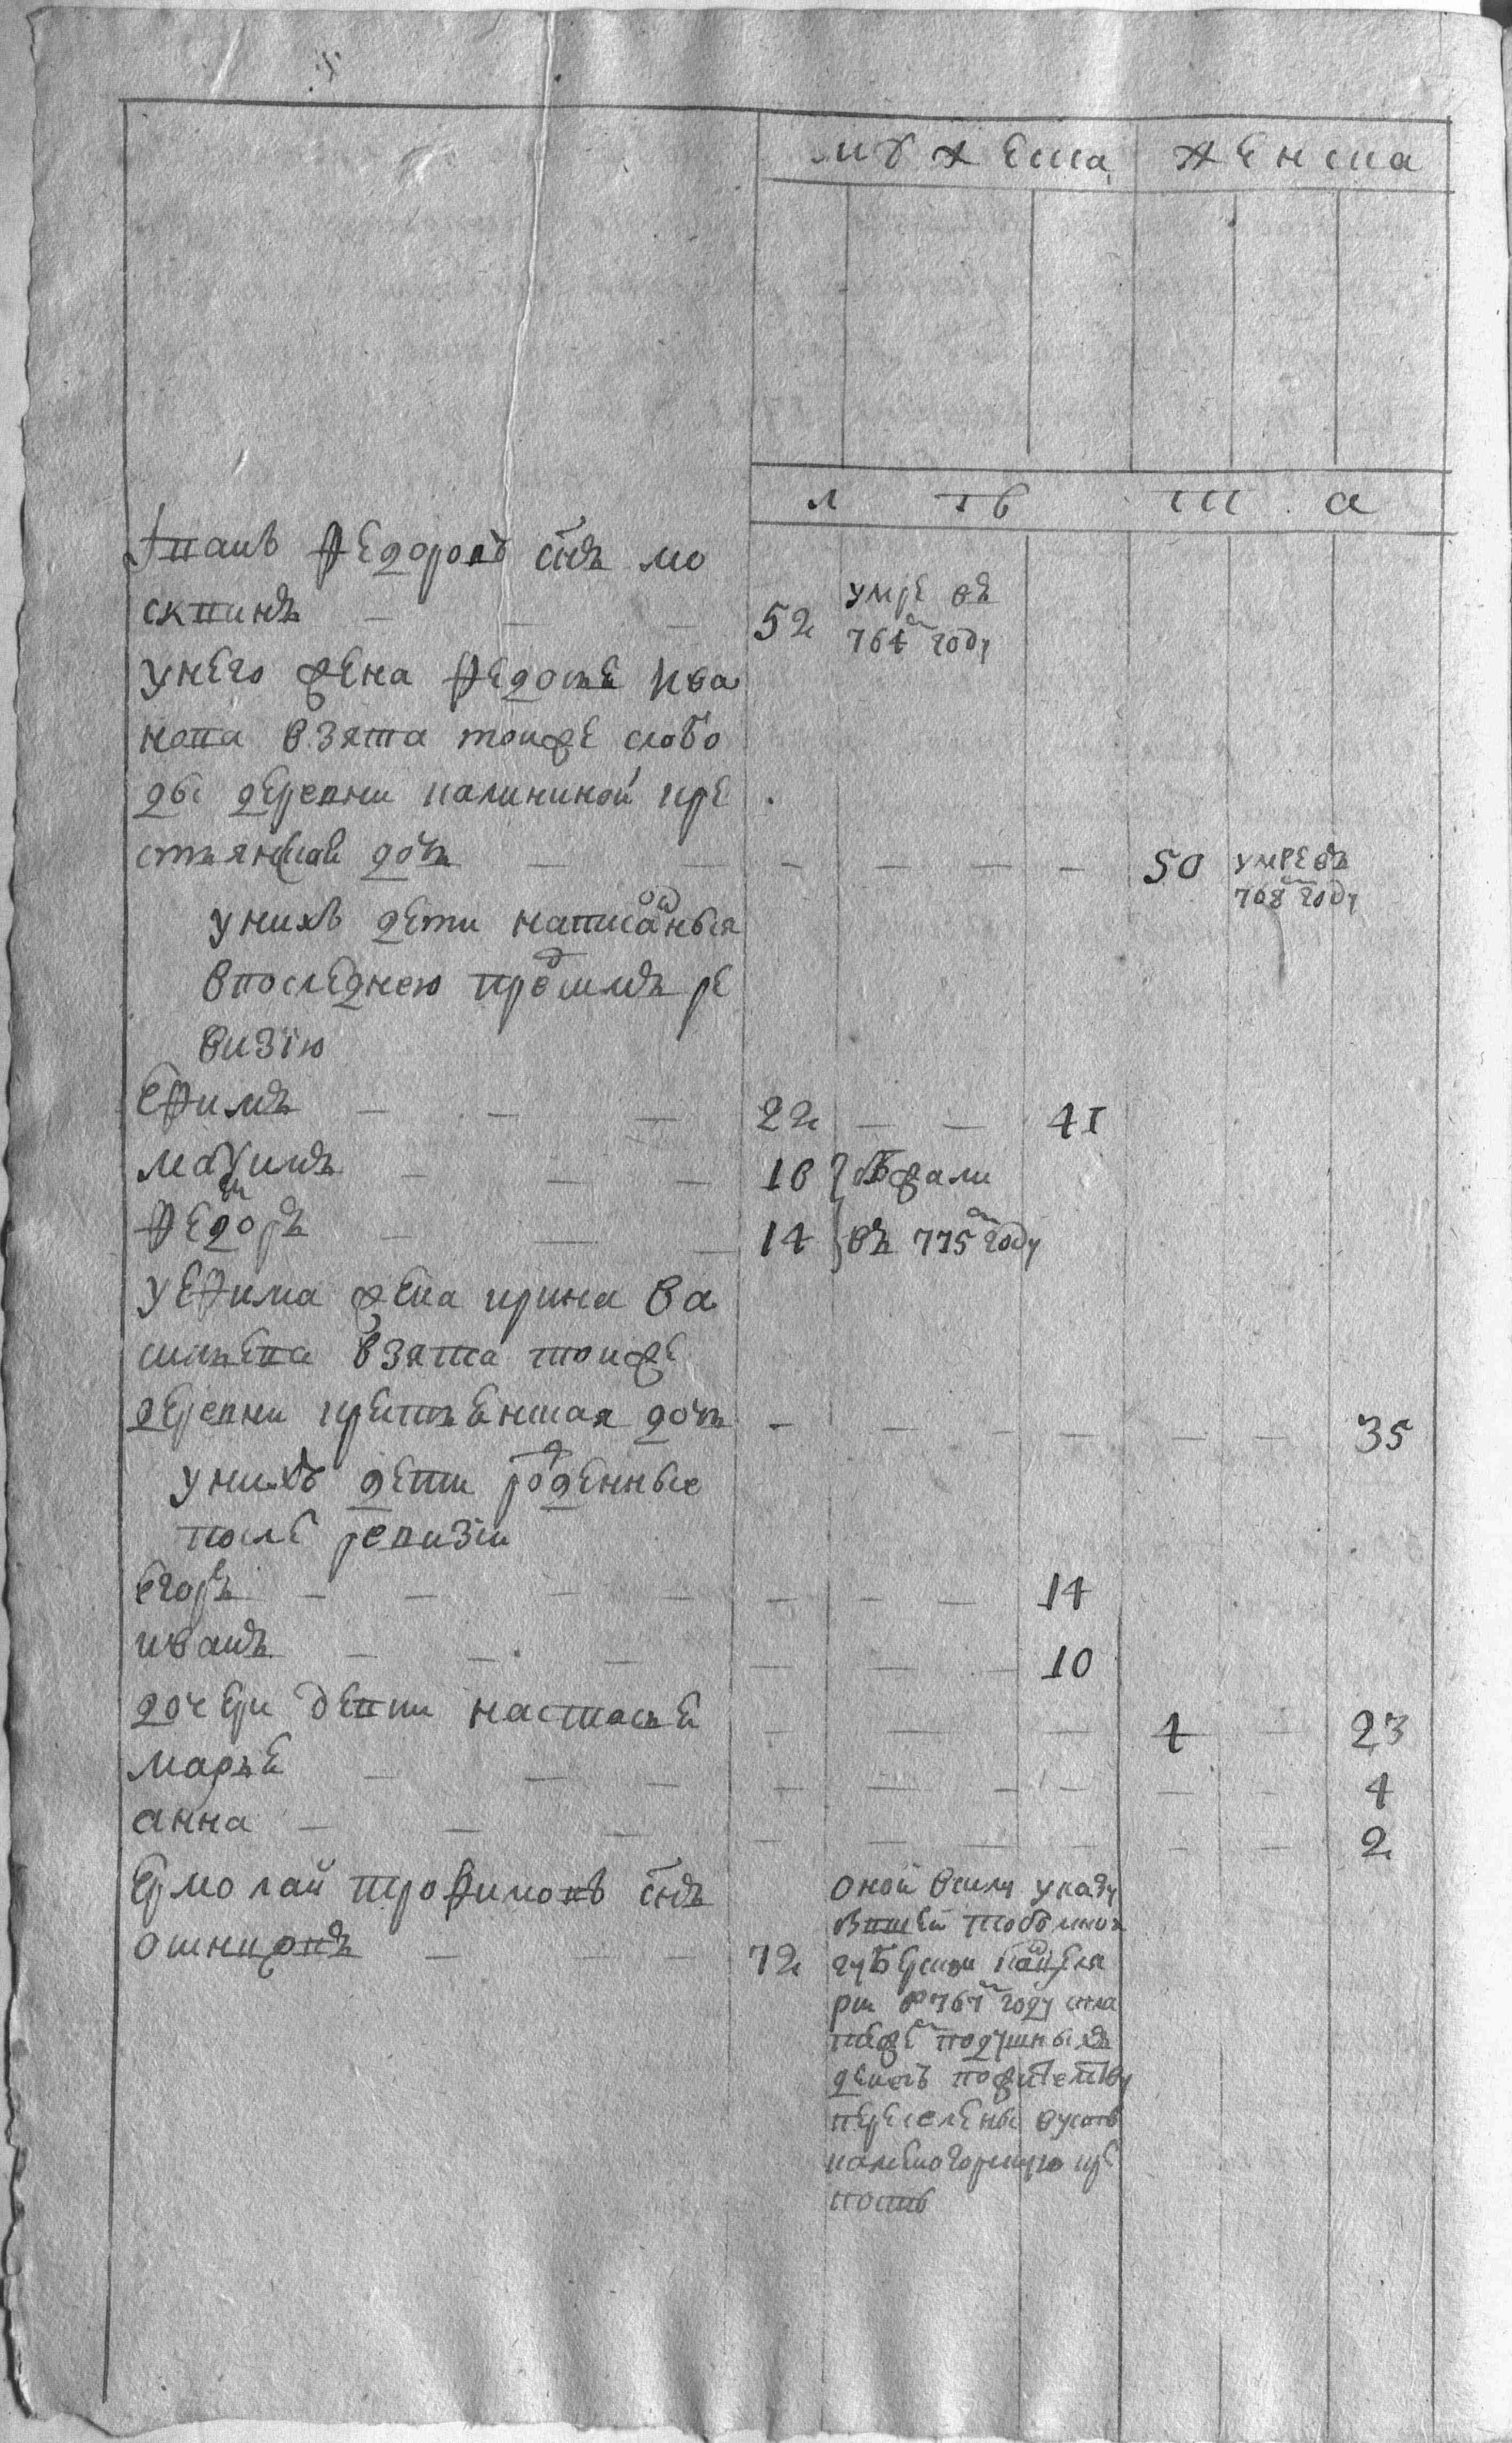 мужеска женска
л ѣ т а
Федоровъ снъ мо
сквинъ 52 умре въ
764м году
унего жена Федосье ива
нова взята тоиже слобо
ды деревни калининой кре
стьянская дочь 50 умре въ
768м году
унихъ дети написанныя
впоследнею пред симъ ре
визїю
ефимъ 22 41
максимъ 16 отданы
Федоръ 14 въ 775м году
уефима жена ирина ва
сильева взята тоиже
деревни крестьенская дочь 35
унихъ дети рожденные
после ревизїи
егоръ 14
иванъ 10
дочери дети настасье 4 23
марье 4
анна 2
ермолай трофимовъ снъ
72
оной всилу указу
бывшей тоболской
губернской канцеля
рии в767м году спла
тежемъ подушныхъ
денегъ пожителству
переселены вусть
каменогорскую кре
пость